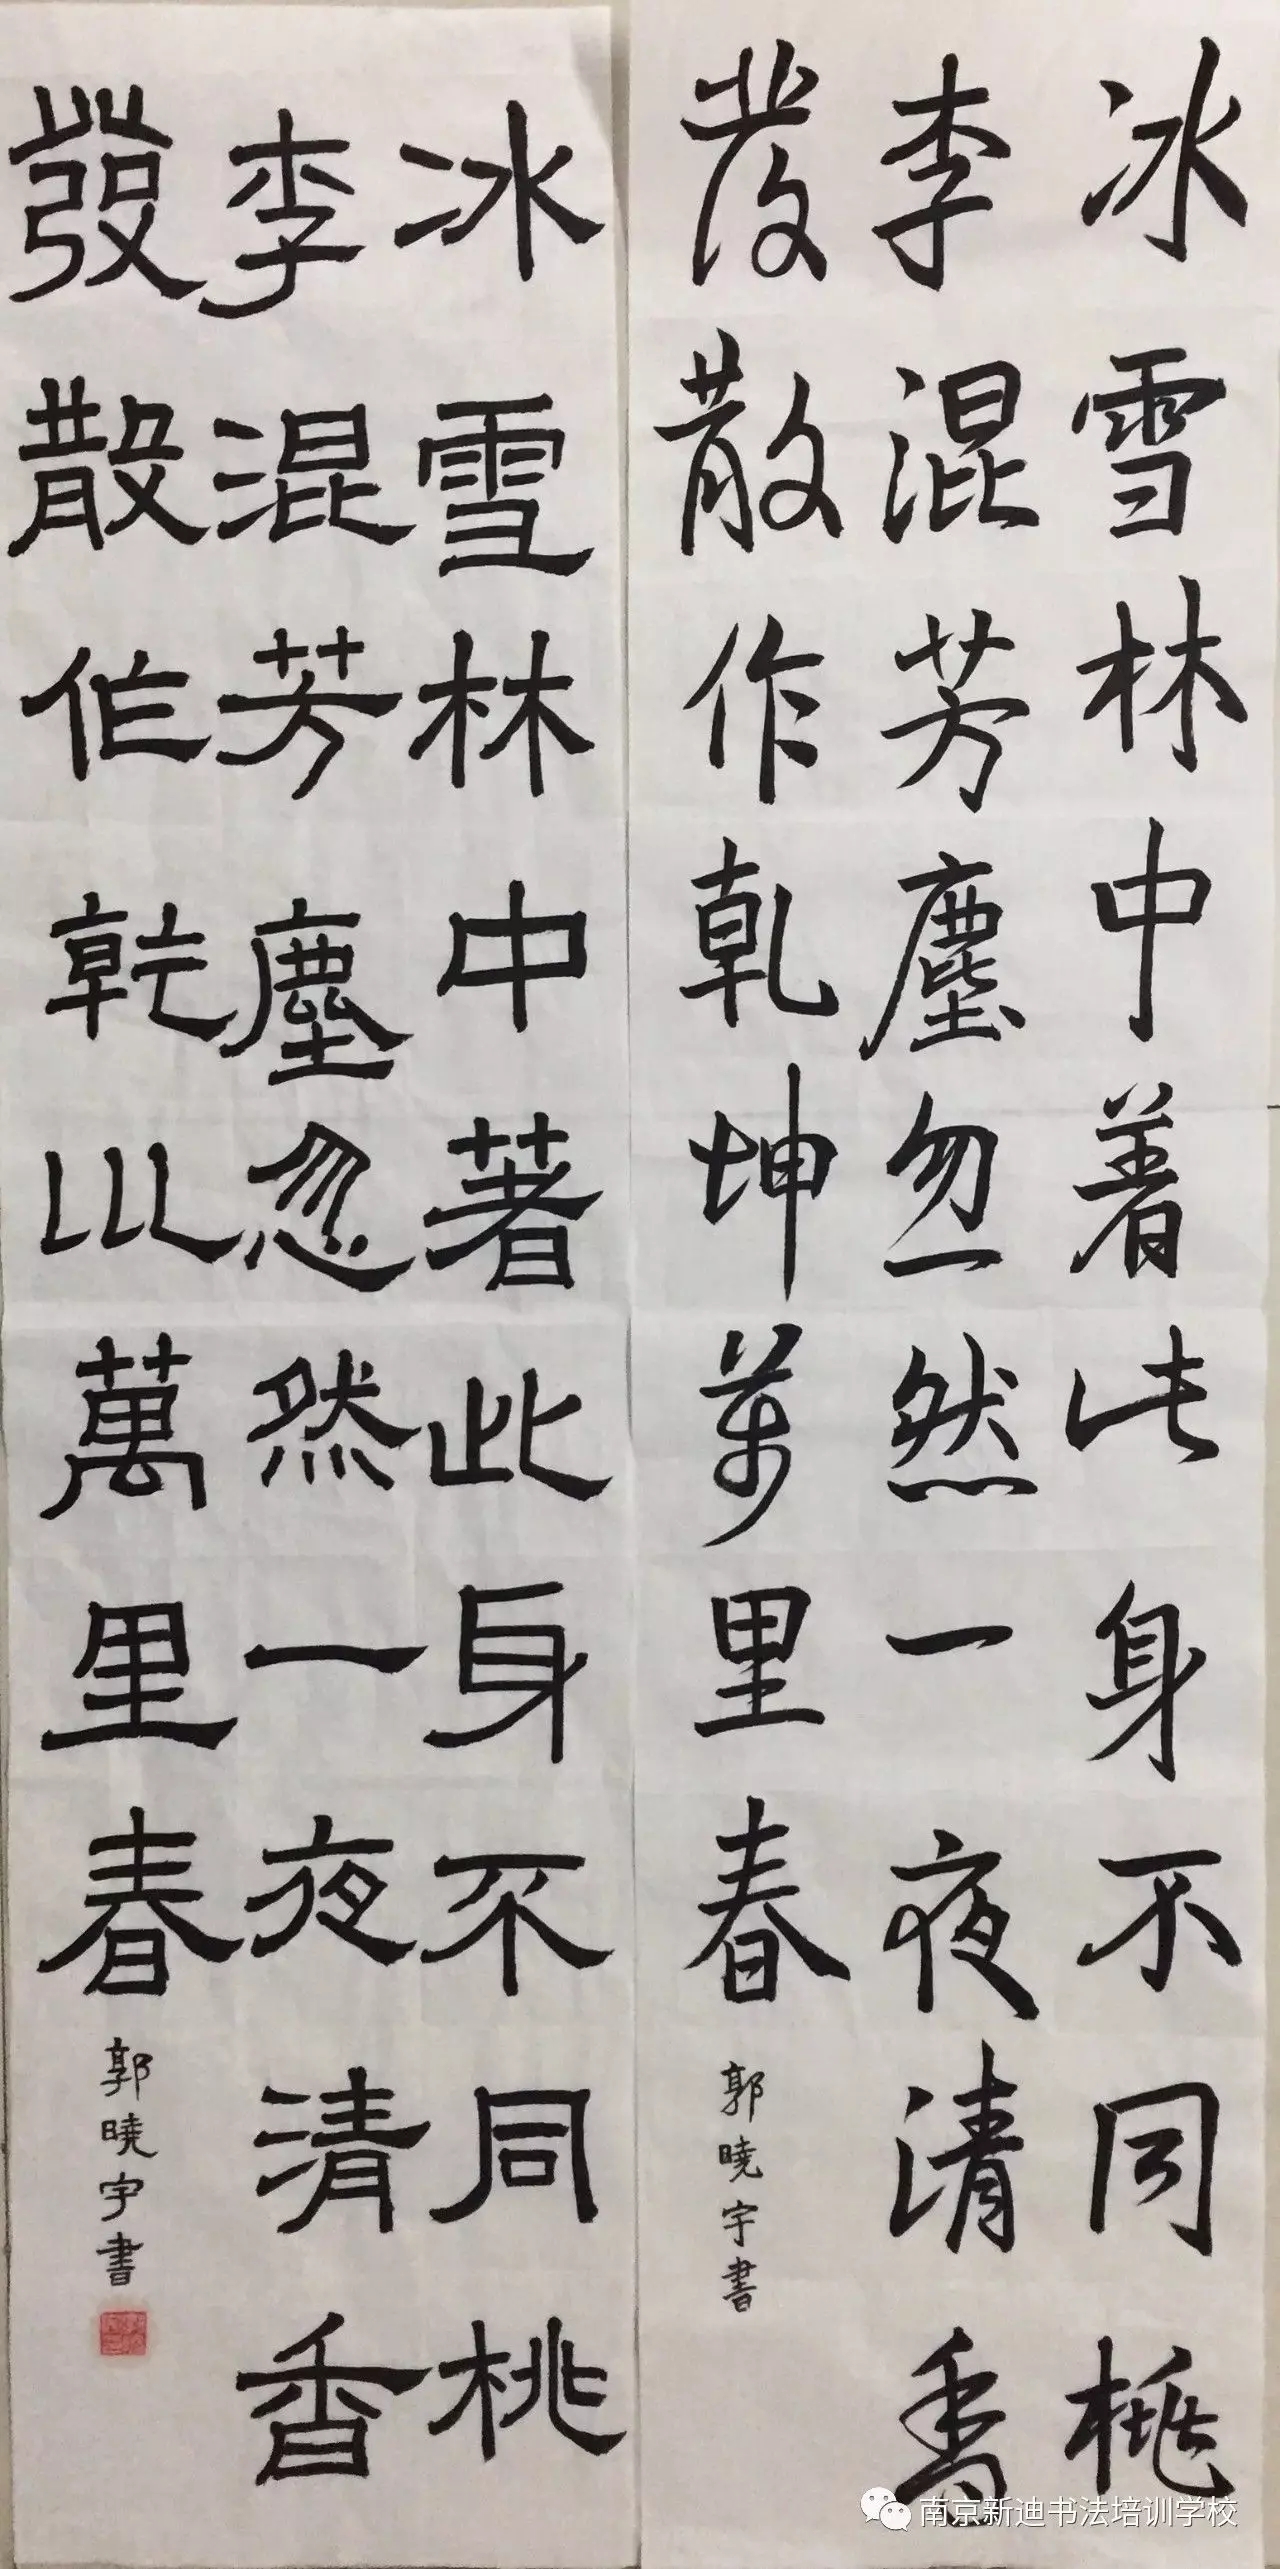 冰雪林中著此身不同桃
李混芳塵忽然一夜清香
發散作乾坤萬里春
郭曉宇書
冰雪林中著此身不同桃
李混芳塵忽然一夜清香
發散作乾巛萬里春
郭曉宇書
南京新迪书法培训学校